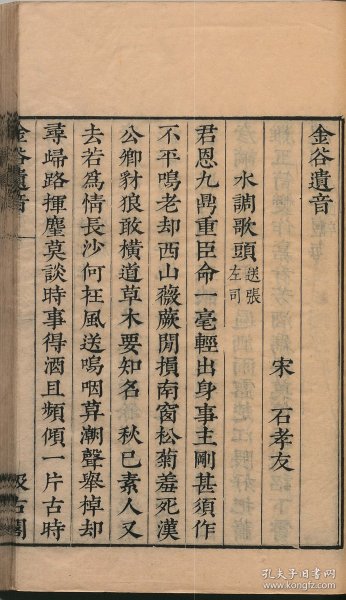 金谷遺音
宋　石孝友
水調歌頭 送張左司
君恩九鼎重臣命一毫輕出身事主剛甚須作
不平鳴老却西山薇蕨閒損南窗松菊羞死漢
公卿豺狼敢橫道草木要知名　秋已素人又
去若爲情長沙何在風送嗚咽算潮聲舉棹却
尋歸路揮麈莫談時事得酒且頻傾一片古時
金谷遺音
一
汲古閣
孔夫子旧书网